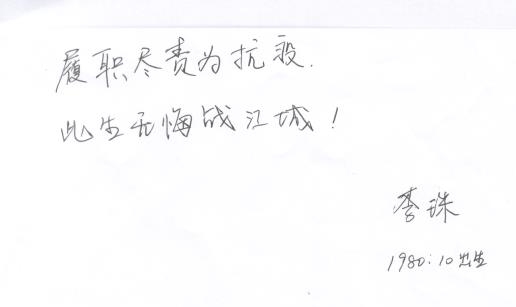 履职尽责为抗疫.
此生无悔战江城！
李珠
1980.10出生